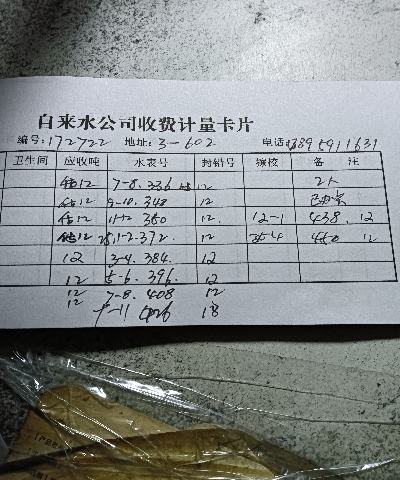 自来水公司收费计量卡片
编号:172722 地址:3-602 电话13895911631
卫生间 应收吨 水表号 封铅号 预校 备 注
估12 7-8.336 12 2人
估12 9-10.348 12
估12 11-12 360 12. 12-1 438. 12
估12 1-2.372. 12 3-4 450 12
12 3-4.384. 12
12 5-6.396. 12
12 7-8.408 12
12 9-11 426 18